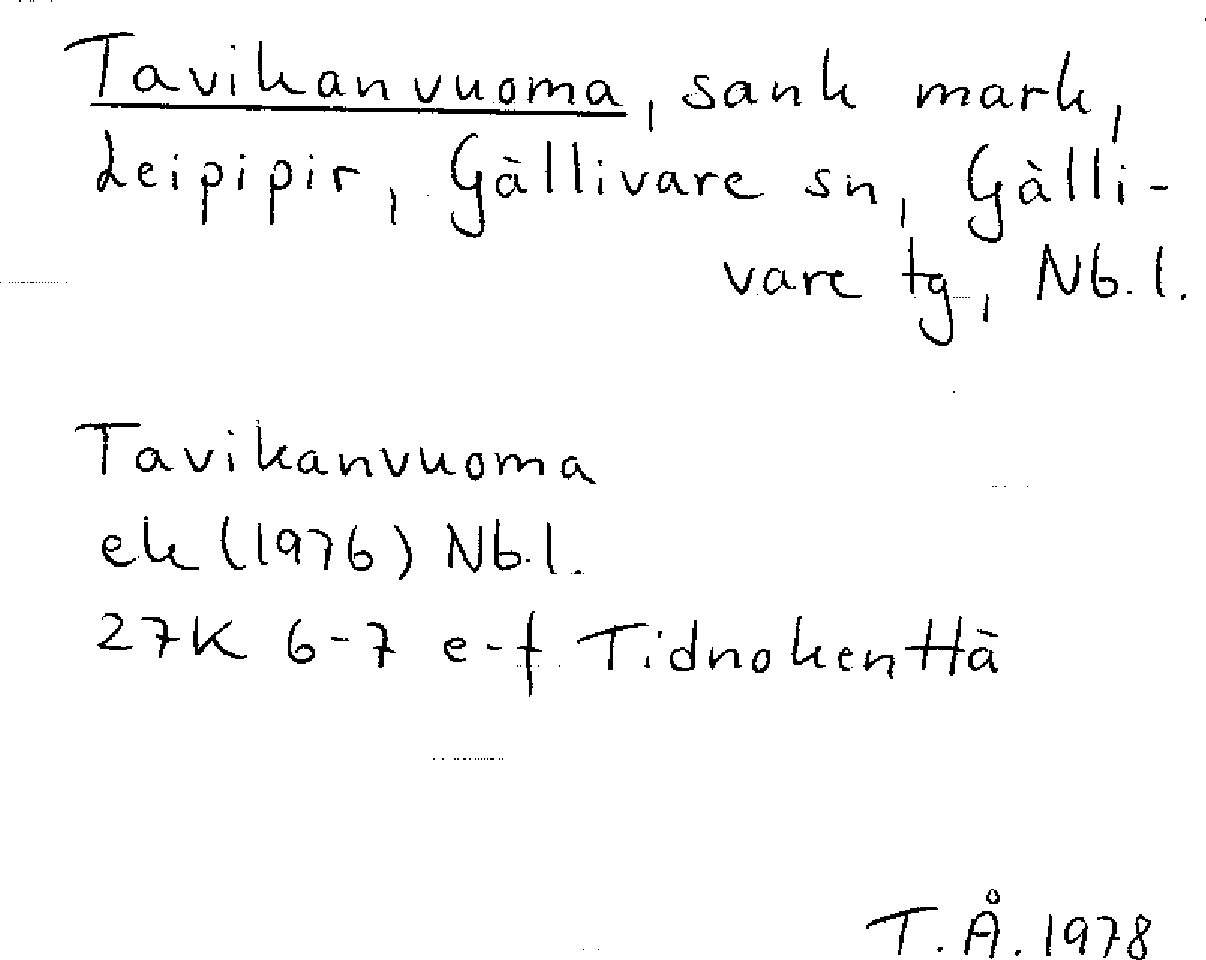 Tavikanvuoma, sank mark,
Leipipir, Gällivare sn, Gälli-
vare tg, Nb.l.
Tavikanvuoma
ek (1976) Nb.l.
27K 6-7 e-f Tidnokenttä
T.Å. 1978